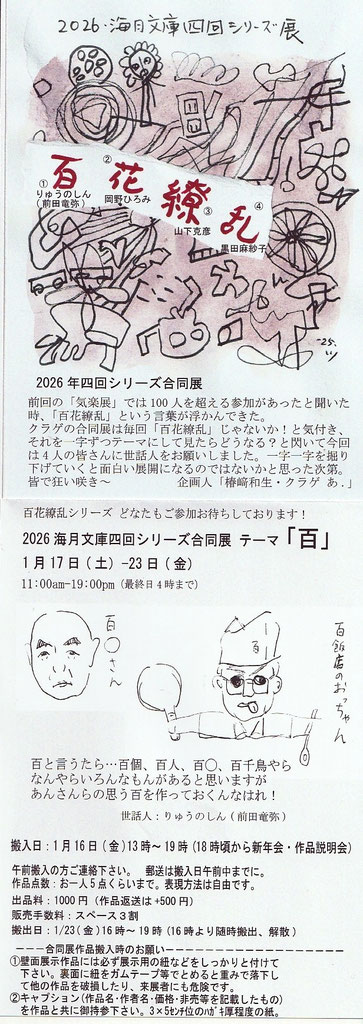 2026・海月文庫四回シリーズ展
百花繚乱
①
りゅうのしん
(前田竜弥)
②
岡野ひろみ
③
山下克彦
④
黒田麻紗子
-25.
2026年四回シリーズ合同展
前回の「気楽展」では100人を超える参加があったと聞いた
時、「百花繚乱」という言葉が浮かんできた。
クラゲの合同展は毎回「百花繚乱」じゃないか！と気付き、
それを一字ずつテーマにして見たらどうなる？と閃いて今回
は４人の皆さんに世話人をお願いしました。一字一字を掘り
下げていくと面白い展開になるのではないかと思った次第。
皆で狂い咲き〜 企画人「椿﨑和生・クラゲ あ.」
百花繚乱シリーズ どなたもご参加お待ちしております！
2026 海月文庫四回シリーズ合同展 テーマ「百」
1月17日(土)-23日(金)
11:00am-19:00pm (最終日４時まで)
百〇さん
百
百飯店のおっちゃん
百と言うたら…百個、百人、百〇、百千鳥やら
なんやらいろんなもんがあると思いますが
あんさんらの思う百を作っておくんなはれ！
世話人：りゅうのしん(前田竜弥)
搬入日：1月16日(金)13時〜19時(18時頃から新年会・作品説明会)
午前搬入の方ご連絡下さい。 郵送は搬入日午前中までに。
作品点数：お一人５点くらいまで。表現方法は自由です。
出品料：1000円（作品返送は+500円）
販売手数料：スペース３割
搬出日：1/23(金)16時〜19時(16時より随時搬出、解散)
----合同展作品搬入時のお願い--------------------
①壁面展示作品には必ず展示用の紐などをしっかりと付けて
下さい。裏面に紐をガムテープ等でとめると重みで落下し
て他の作品を破損したり、来展者にも危険です。
②キャプション(作品名・作者名・価格・非売等を記載したもの)
を作品と共に御持参下さい。3×5ｾﾝﾁ位のﾊｶﾞｷ厚程度の紙。